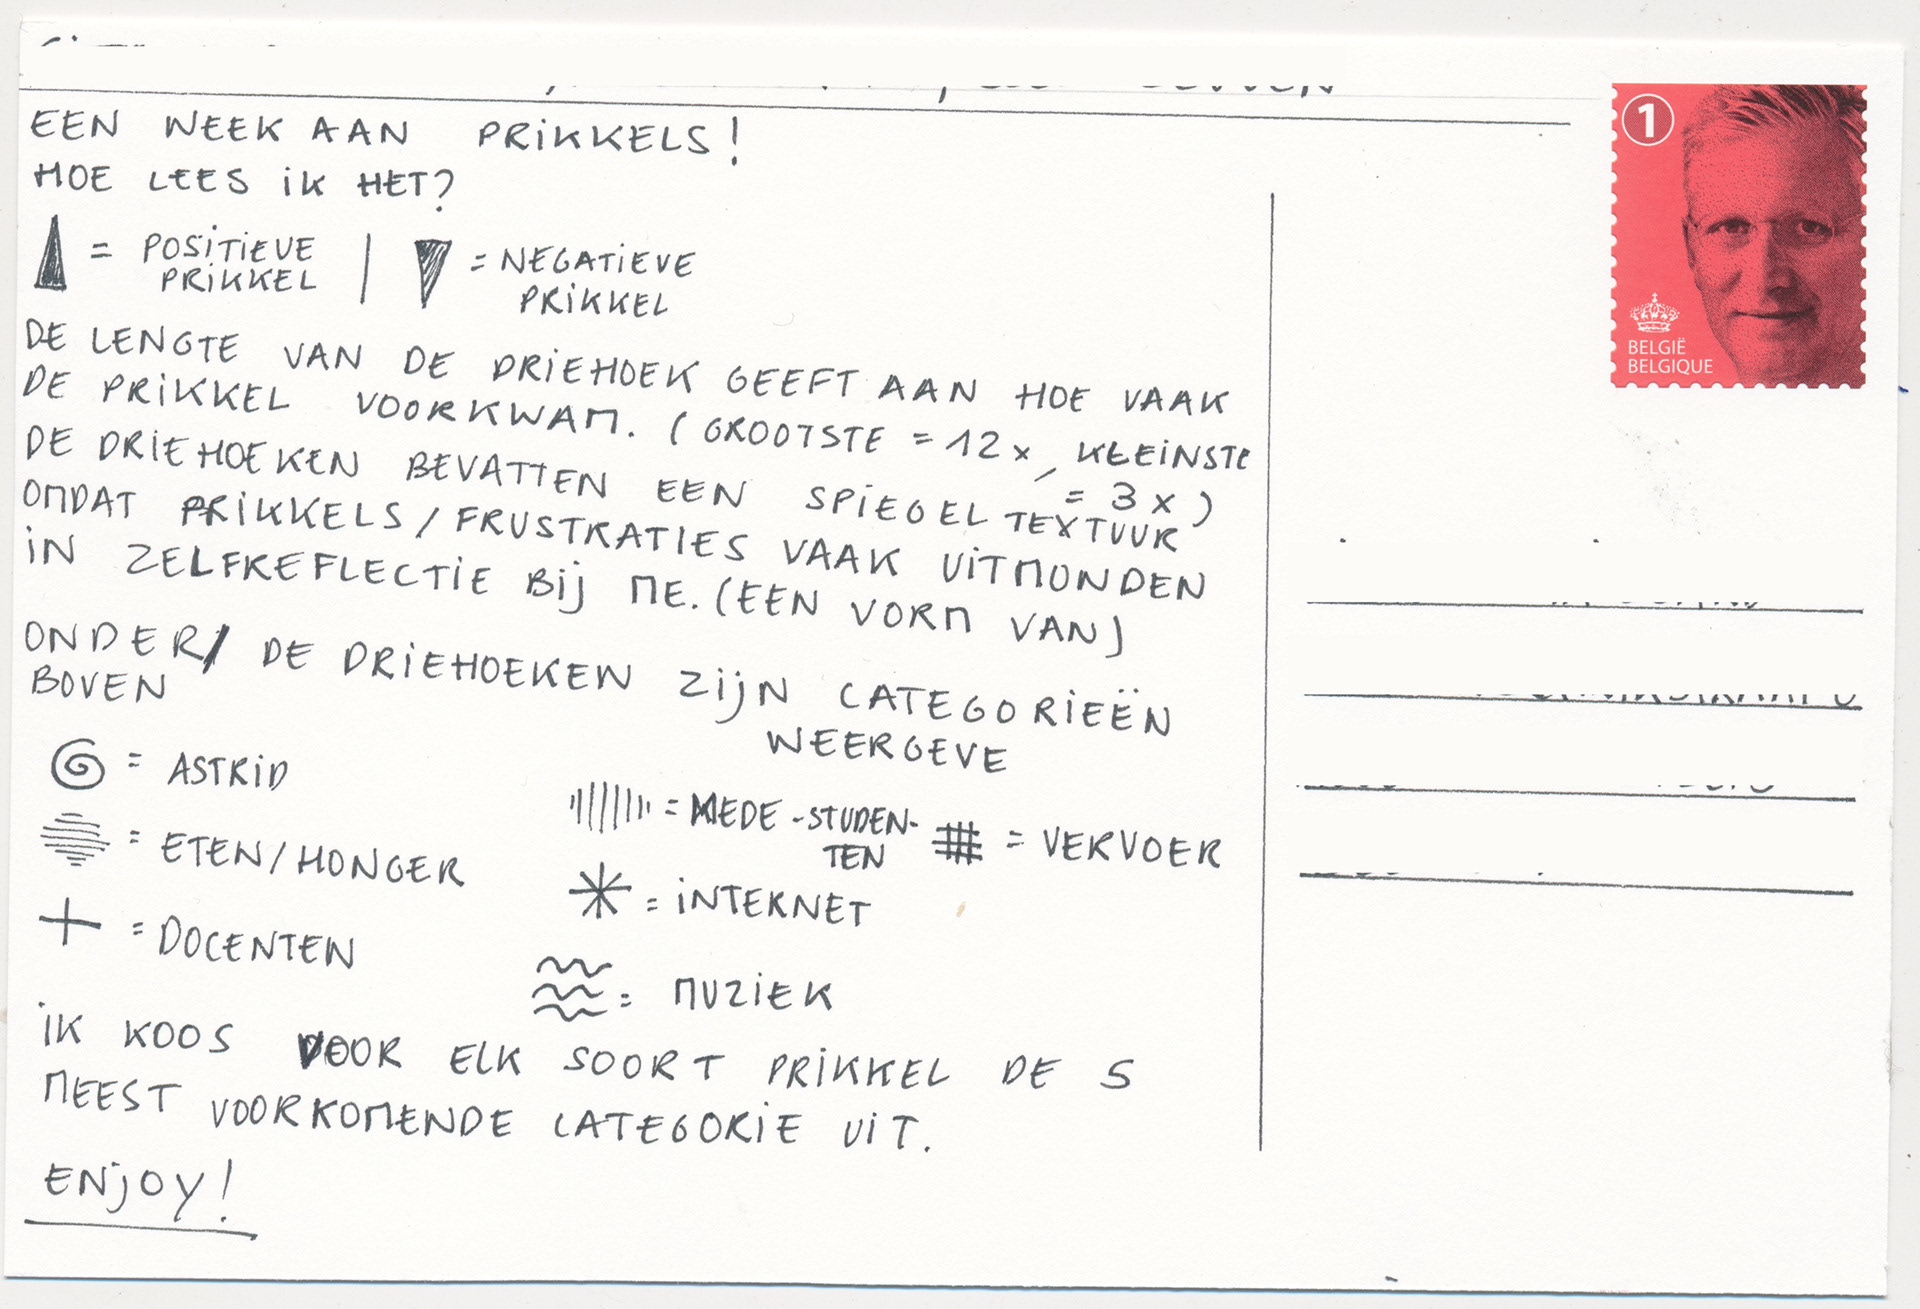 EEN WEEK AAN PRIKKELS!
HOE LEES IK HET?
= POSITIEVE PRIKKEL | = NEGATIEVE PRIKKEL
DE LENGTE VAN DE DRIEHOEK GEEFT AAN HOE VAAK
DE PRIKKEL VOORKWAM. (GROOTSTE = 12x, KLEINSTE = 3x)
DE DRIEHOEKEN BEVATTEN EEN SPIEGELTEXTUUR
OMDAT PRIKKELS/FRUSTRATIES VAAK UITMONDEN
IN ZELFREFLECTIE BIJ ME. (EEN VORM VAN)
ONDER/BOVEN DE DRIEHOEKEN ZIJN CATEGORIEËN
WEERGEVE
= ASTRID
= ETEN/HONGER
= DOCENTEN
= MEDE-STUDEN-
TEN
= INTERNET
= MUZIEK
= VERVOER
IK KOOS VOOR ELK SOORT PRIKKEL DE 5
MEEST VOORKOMENDE CATEGORIE UIT.
ENJOY!
1
BELGIË
BELGIQUE